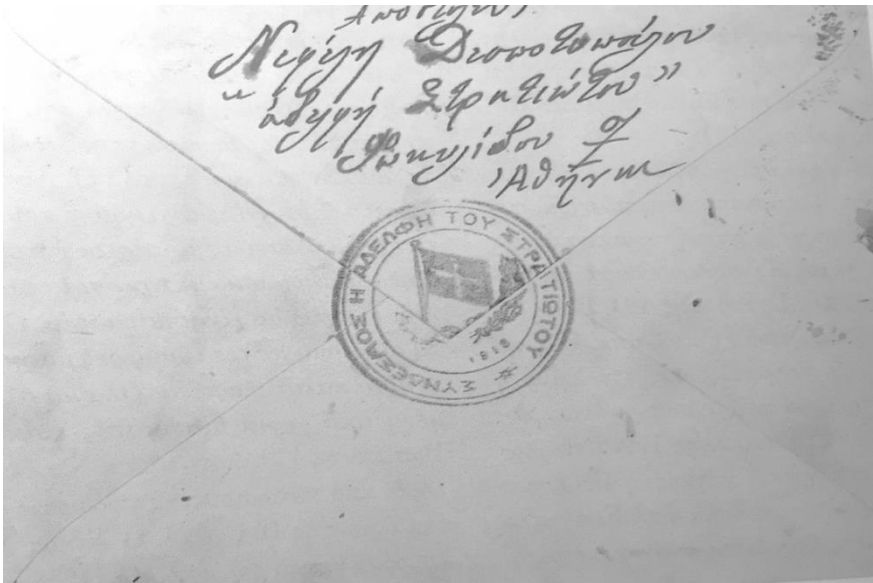 Αποστολεύς
Νεφέλη Δεσποτοπούλου
"ἀδελφή Στρατιώτου"
Φωκυλίδου 9
Ἀθήναι
ΣΥΝΔΕΣΜΟΣ Η ΑΔΕΛΦΗ ΤΟΥ ΣΤΡΑΤΙΩΤΟΥ
1918